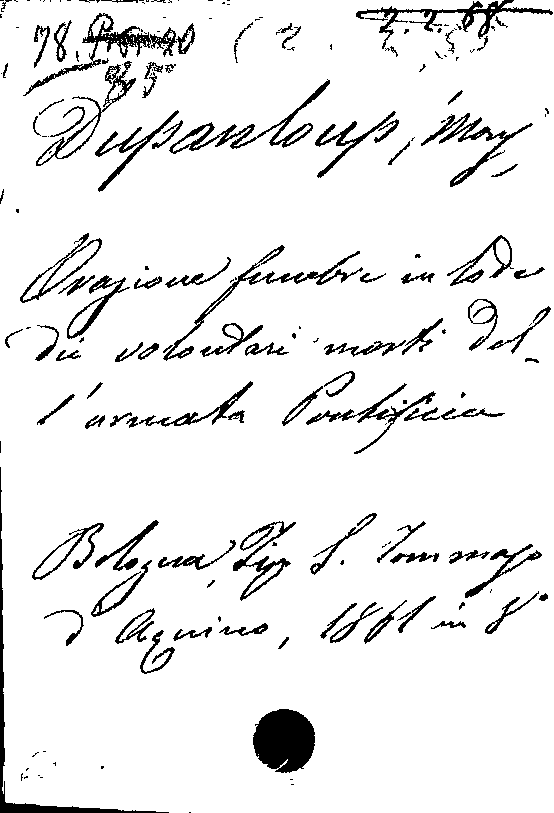 78. 2. 2. 68
35
Dupanloup, Mons,
Orazione funebre in lode
dei volontari morti del-
l'armata Pontificia
Bologna, Tip S. Tommaso
d'Aquino, 1861 in 8°